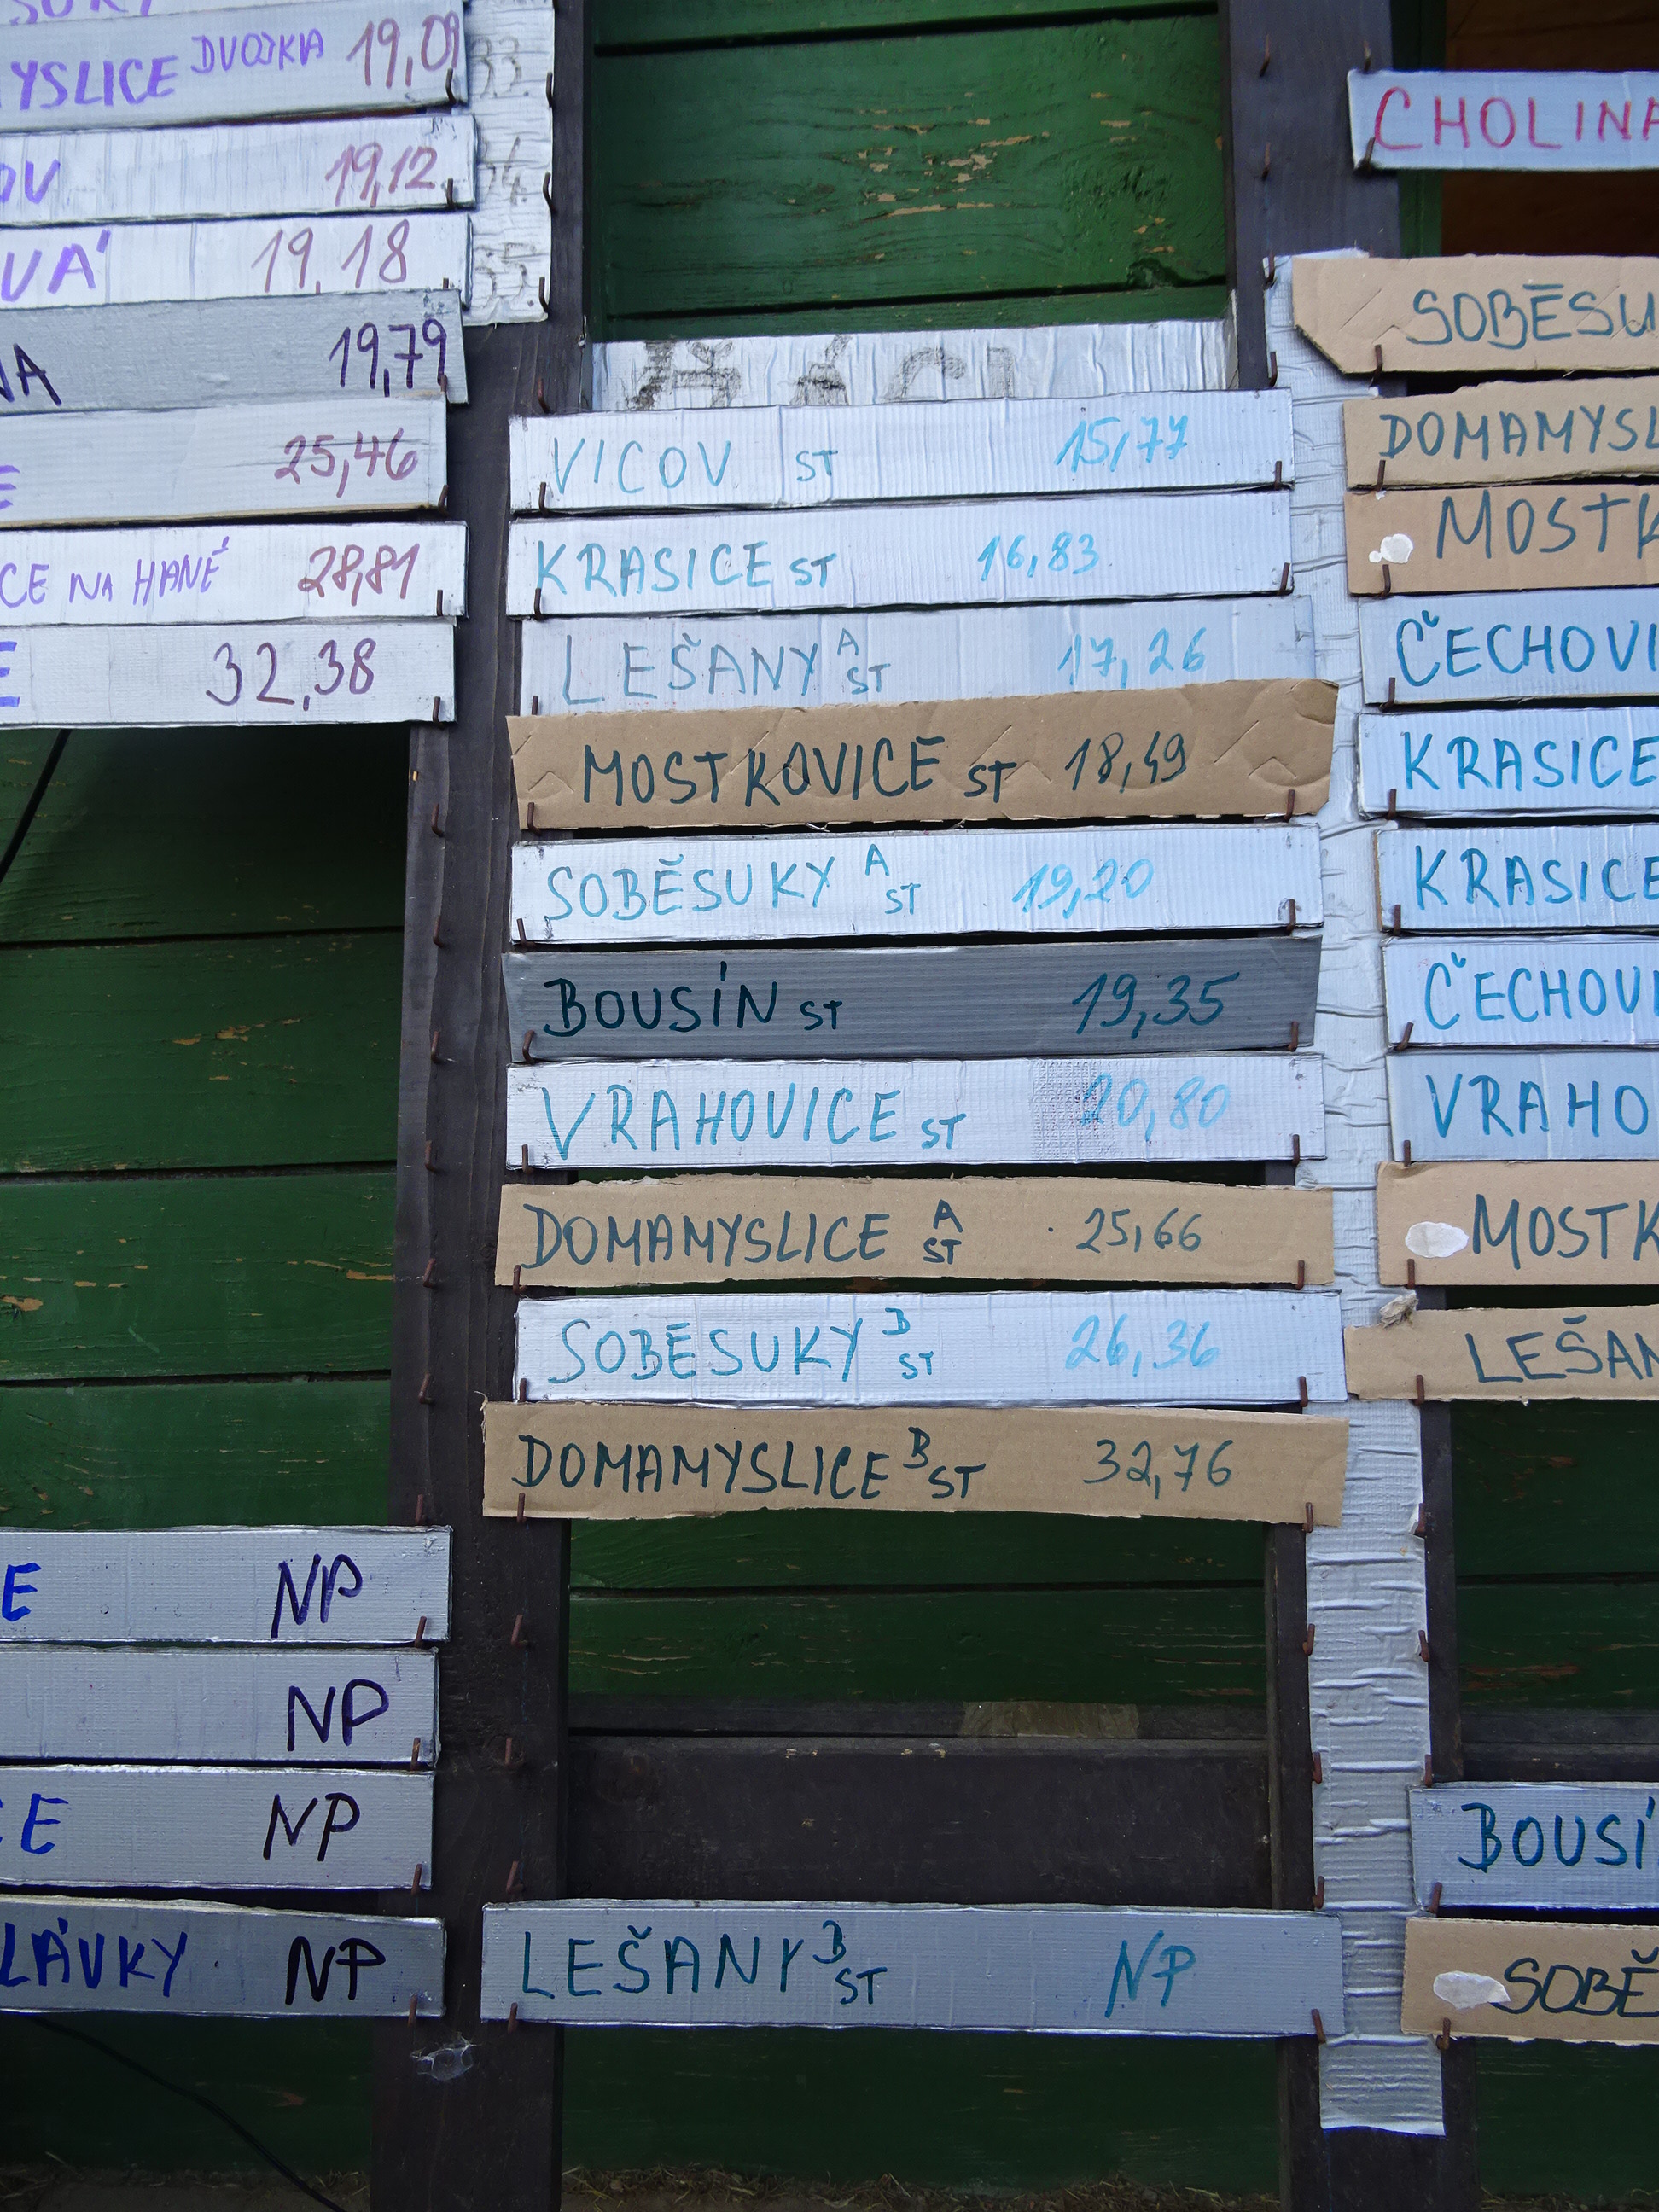 DVOJKA 19,09
YSLICE
33
OV 19,12
VÁ 19,18
35
NA 19,79
E 25,46
CE NA HANÉ 28,81
E 32,38
E NP
NP
CE NP
LÁVKY NP
VICOV ST 15,77
KRASICE ST 16,83
LEŠANY A ST 17,26
MOSTKOVICE ST 18,49
SOBĚSUKY A ST 19,20
BOUSÍN ST 19,35
VRAHOVICE ST 20,80
DOMAMYSLICE A ST 25,66
SOBĚSUKY B ST 26,36
DOMAMYSLICE B ST 32,76
LEŠANY B ST NP
CHOLINA
SOBĚSU
DOMAMYSL
MOSTK
ČECHOVI
KRASICE
KRASICE
ČECHOVI
VRAHO
MOSTK
LEŠAN
BOUSÍ
SOBĚ